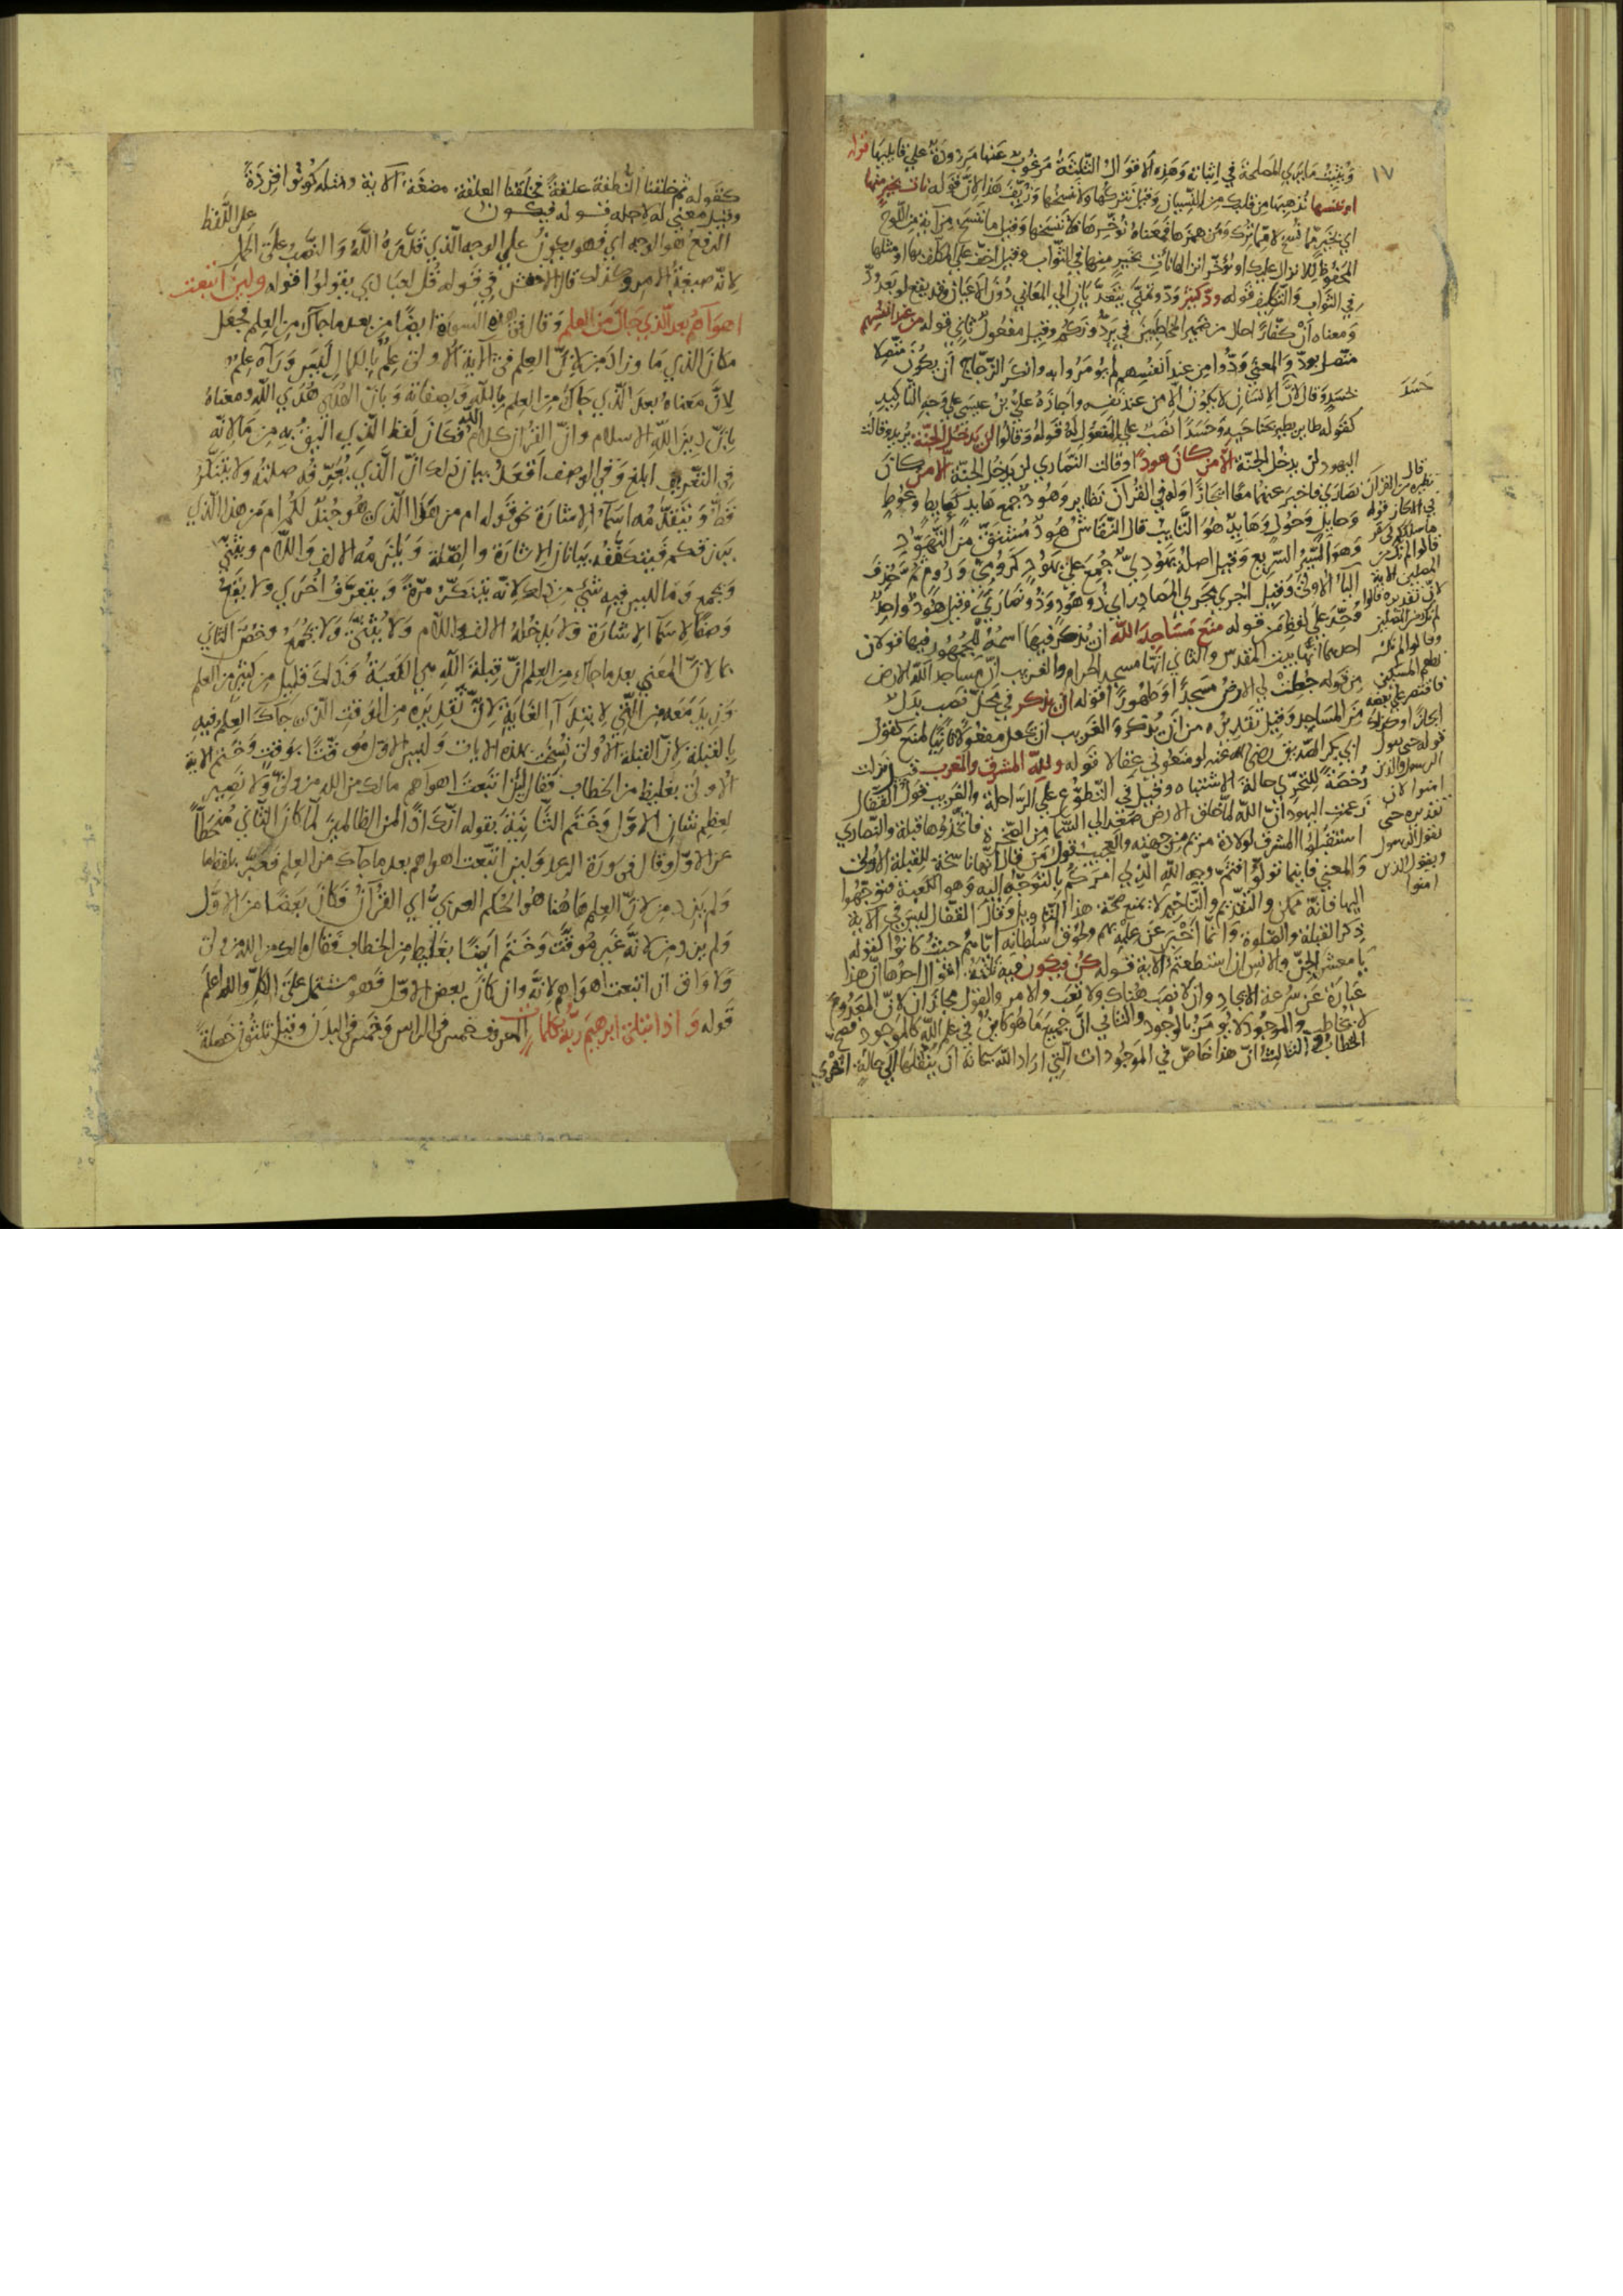 ١٧
ويثبت ما يرى المصلحة في اثباته وهذه الاقوال الثلثة مرغوب عنها مردودة علي قايليها قوله
او ننسها نذهبها من قلبك من النسيان وقيل نتركها ولا ننسخها وزيف هذا لانّ قوله نات بخير منها
المحفوظ للانزال عليك او نؤخر انزالها نات بخير منها في الثواب وقيل اخف علي المكلف بها او مثلها
في الثواب والتكليف قوله ودّ كثير
ومعناه ان كفارا حلا من ضمير المخاطبين في يردونكم وقيل مفعول ثاني قوله من عند انفسهم
متصل بودّ والمعني ودّوا من عند انفسهم لم يؤمروا به وانكر الزجّاج ان يكون متصلا
بحسد وقال لانّ الانسان لا يكون الا من عند نفسه واجازه علي بن عيسي علي وجه التاكيد
حسد
كقوله طاير يطير بجناحيه وحسدا نصب علي المفعول له قوله وقالوا لن يدخل الجنّة يريد وقالت
اليهود لن يدخل الجنّة الّا من كان هودا وقالت النصاري لن يدخل الجنّة الا من كان
نصاري فاخبر عنهما معا ايجازا وله في القرآن نظاير وهود جمع هايد كعايط وعوط
وحايل وحول وهايد هو التايب قال النقاش هود مشتق من التهوّد
وهو السير السريع وقيل اصله يهوديّ جمع علي يهود كرومي وروم ثم حذف
الياء الاولي وقيل اجري مجري المصادر اي ذو هود وذو نصاري وقيل هود واحد
وحّد علي لفظ من قوله منع مساجد الله ان يذكر فيها اسمه للجمهور فيها قولان
احدهما انها بيت المقدس والثاني انها مسجد الحرام والغريب انّ مساجد الله الارض
من قوله جعلت لي الارض مسجدا وطهورا قوله ان يذكر في محل نصب بدل
من المساجد وقيل تقديره من ان يذكر والغريب ان يجعل مفعولا ثانيا لمنع كقول
ابي بكر الصّديق رضي الله عنه لو منعوني عقالا قوله ولله المشرق والمغرب قيل نزلت
رخصة للتحرّي حالة الاشتباه وقيل في التطوّع علي الراحلة والغريب قول القفّال
زعمت اليهود انّ الله لما خلق الارض صعد الي السما من الصخرة فاتخذوها قبلة والنصاري
استقبلوا المشرق لولادة مريم من جهته والعجيب قول من قال انها ناسخة للقبلة الاولي
والمعني فاينما تولّوا فثم وجه الله الذي امركم بالتوجّه اليه وهو الكعبة فتوجّهوا
اليها فانّه ممكن والتقديم والتاخير لا يمنع صحّة هذا التاويل وقال القفّال ليس في الاية
ذكر القبلة والصلوة وانّما اخبر عن علمه بهم ولحوق سلطانه ايّاهم حيث كانوا كقوله
يا معشر الجنّ والانس ان استطعتم الاية قوله كن فيكون فيه ثلثة اقوال احدها انّ هذا
عبارة عن سرعة الايجاد وان لا نصب هناك ولا تعب ولا امر والقول مجازان لانّ المعدوم
لا يخاطب والموجود لا يؤمر بالوجود والثاني انّ جميع ما هو كاين في علم الله كالموجود فصح
الخطاب والثالث انّ هذا خاصّ في الموجودات التي اراد الله سبحانه ان ينقلها الي حالة اخري
كقوله ثم خلقنا النطفة علقة فخلقنا العلقة مضغة الاية ومثله كونوا قردة
وقيل معني له لاجله قوله فيكون علي اللفظ
الرفع هو الوجه اي فهو يكون علي الوجه الذي قدّره الله والنصب علي الحمل
لانه صيغة الامر وكذلك قال الاخفش في قوله قل لعبادي يقولوا قوله ولين اتبعت
اهواهم بعد الذي جاك من العلم وقال في هذه السورة ايضا من بعد ما جاك من العلم فجعل
مكان الذي ما وزاد من لانّ العلم في الاية الاولي علم بالكمال ليس وراه علم
لانّ معناه بعد الذي جاك من العلم بالله وصفاته وبانّ الهدي هدي الله ومعناه
بانّ دين الله الاسلام وانّ القران كلام الله فكان لفظ الذي اليق به من ما لانه
في التعريف ابلغ وفي الوصف اقعد بيان ذلك انّ الذي يعرّفه صلته ولا يتنكّر
قطّ ويتقدّمه اسما الاشارة نحو قوله ام من هذا الذي هو جند لكم ام من هذا الذي
يرزقكم فيتكنّفه بيانان الاشارة والصّلة ويلزمه الالف واللام ويثنّي
ويجمع وما ليس فيه شيي من ذلك لانه يتنكّر مرّة ويتعرّف اخري ولا يقع
وصفا لاسما الاشارة ولا يدخله الالف واللام ولا يثنّي ولا يجمع وخصّ الثاني
بما لانّ المعني بعد ما جاك من العلم انّ قبلة الله هي الكعبة وذلك قليل من كثير من العلم
وزيد معه من التي لابتدآ الغاية لانّ تقديره من الوقت الذي جاك العلم فيه
بالقبلة لانّ القبلة الاولي نسخت بهذه الايات وليس الاوّل موقتا بوقت وختم الاية
الاولي بغليظ من الخطاب فقال لين اتبعت اهواهم مالك من الله من وليّ ولا نصير
لعظم شان الاوّل وختم الثانية بقوله انّك اذا لمن الظالمين لما كان الثاني منحطّا
عن الاوّل وقال في سورة الرعد ولين اتبعت اهواهم بعد ما جاك من العلم فعبّر بلفظ ما
ولم يزد من لانّ العلم هاهنا هو الحكم العربيّ اي القرآن فكان بعضا من الاوّل
ولم يزد من لانّه غير موقّت وختم ايضا بغليظ من الخطاب فقال مالك من الله من وليّ
ولا واق ان اتبعت اهواهم لانّه وان كان بعض الاوّل فهو مشتمل علي الكلّ والله اعلم
قوله واذ ابتلي ابرهيم ربّه بكلمات المعروف خمس في الراس وخمس في البدن وقيل ثلثون خصلة